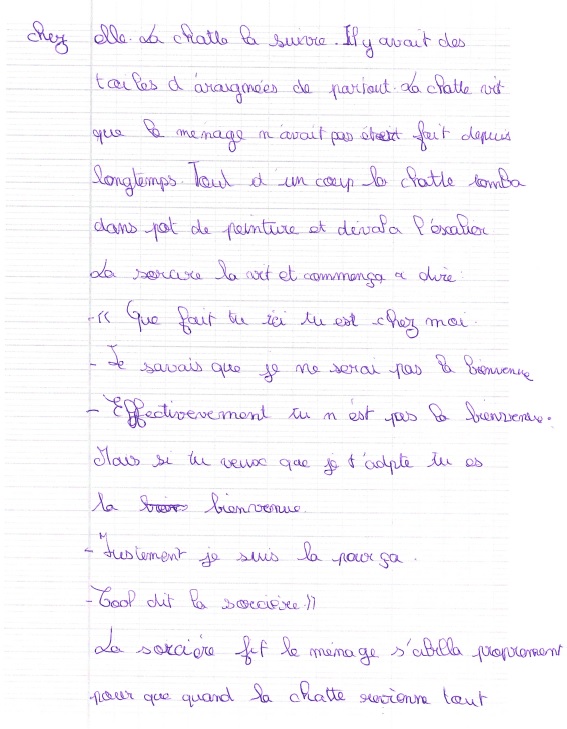 chez elle. La chatte la suivre. Il y avait des
toiles d'araignées de partout. La chatte vit
que le menage n'avait pas était fait depuis
longtemps. Tout d'un coup la chatte tomba
dans pot de peinture et dévala l'éscalier
La sorcière la vit et commença a dire:
-« Que fait tu ici tu est chez moi.
- Je savais que je ne serai pas la bienvenue
- Effectivevement tu n'est pas la bienvenue.
Mais si tu veux que je t'adpte tu es
la bienvenue.
- Justement je suis la pour ça.
- Cool dit la sorcière.»
La sorcière fit le ménage s'abilla proprement
pour que quand la chatte revienne tout